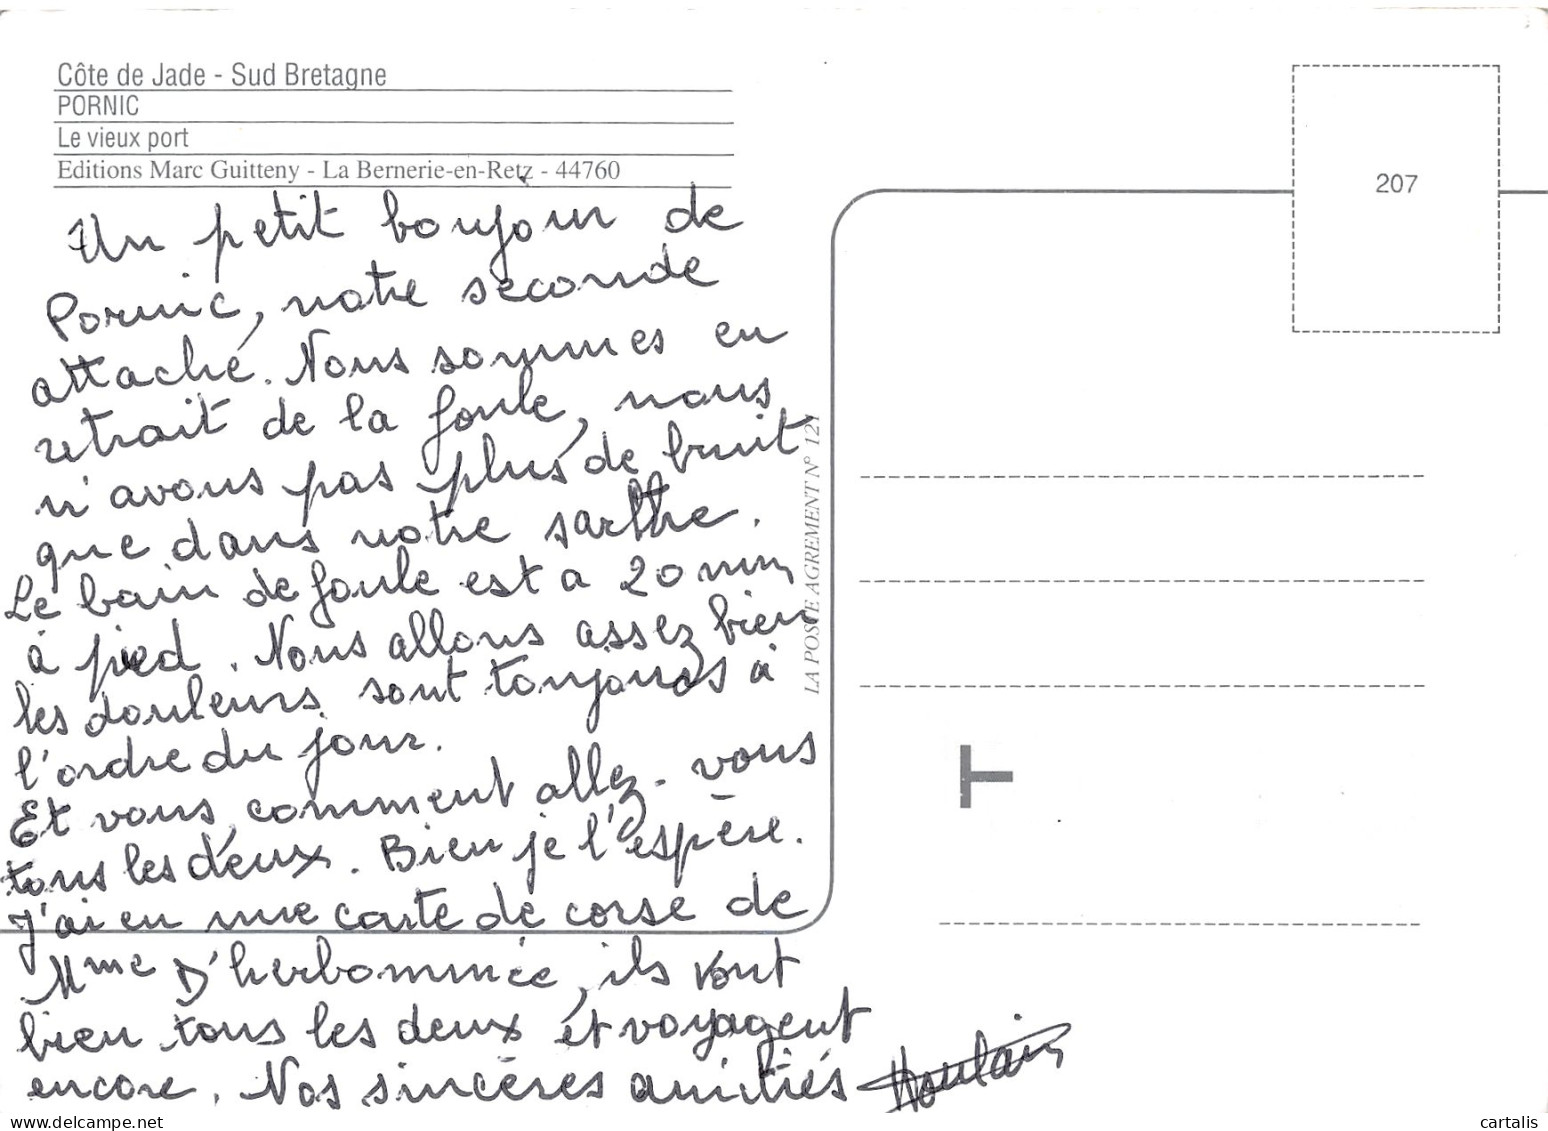 Côte de Jade - Sud Bretagne
PORNIC
Le vieux port
Editions Marc Guitteny - La Bernerie-en-Retz - 44760
207
Un petit boujour de
Pornic, notre seconde
attaché. Nous sommes en
retrait de la foule, nous
n'avons pas plus de bruit
que dans notre sarthe.
Le bain de foule est a 20 mm
à pied. Nous allons assez bien
les douleurs sont toujours à
l'ordre du jour.
Et vous, comment allez-vous
tous les deux. Bien je l'espère.
J'ai eu une carte de corse de
Mme D'herbommée, ils vont
bien tous les deux et voyagent
encore. Nos sincères amitiés
Houlain
LA POSTE AGREMENT N° 121
cartalis
www.delcampe.net